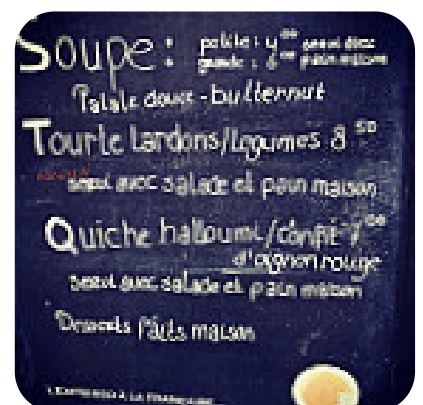 Soupe: petite: 4.00 servi avec
grande: 6.00 pain maison
Patate douce - butternut
Tourte lardons/légumes 8.50
servi avec salade et pain maison
Quiche halloumi/confit 7.00
d'oignon rouge
servi avec salade et pain maison
Desserts faits maison